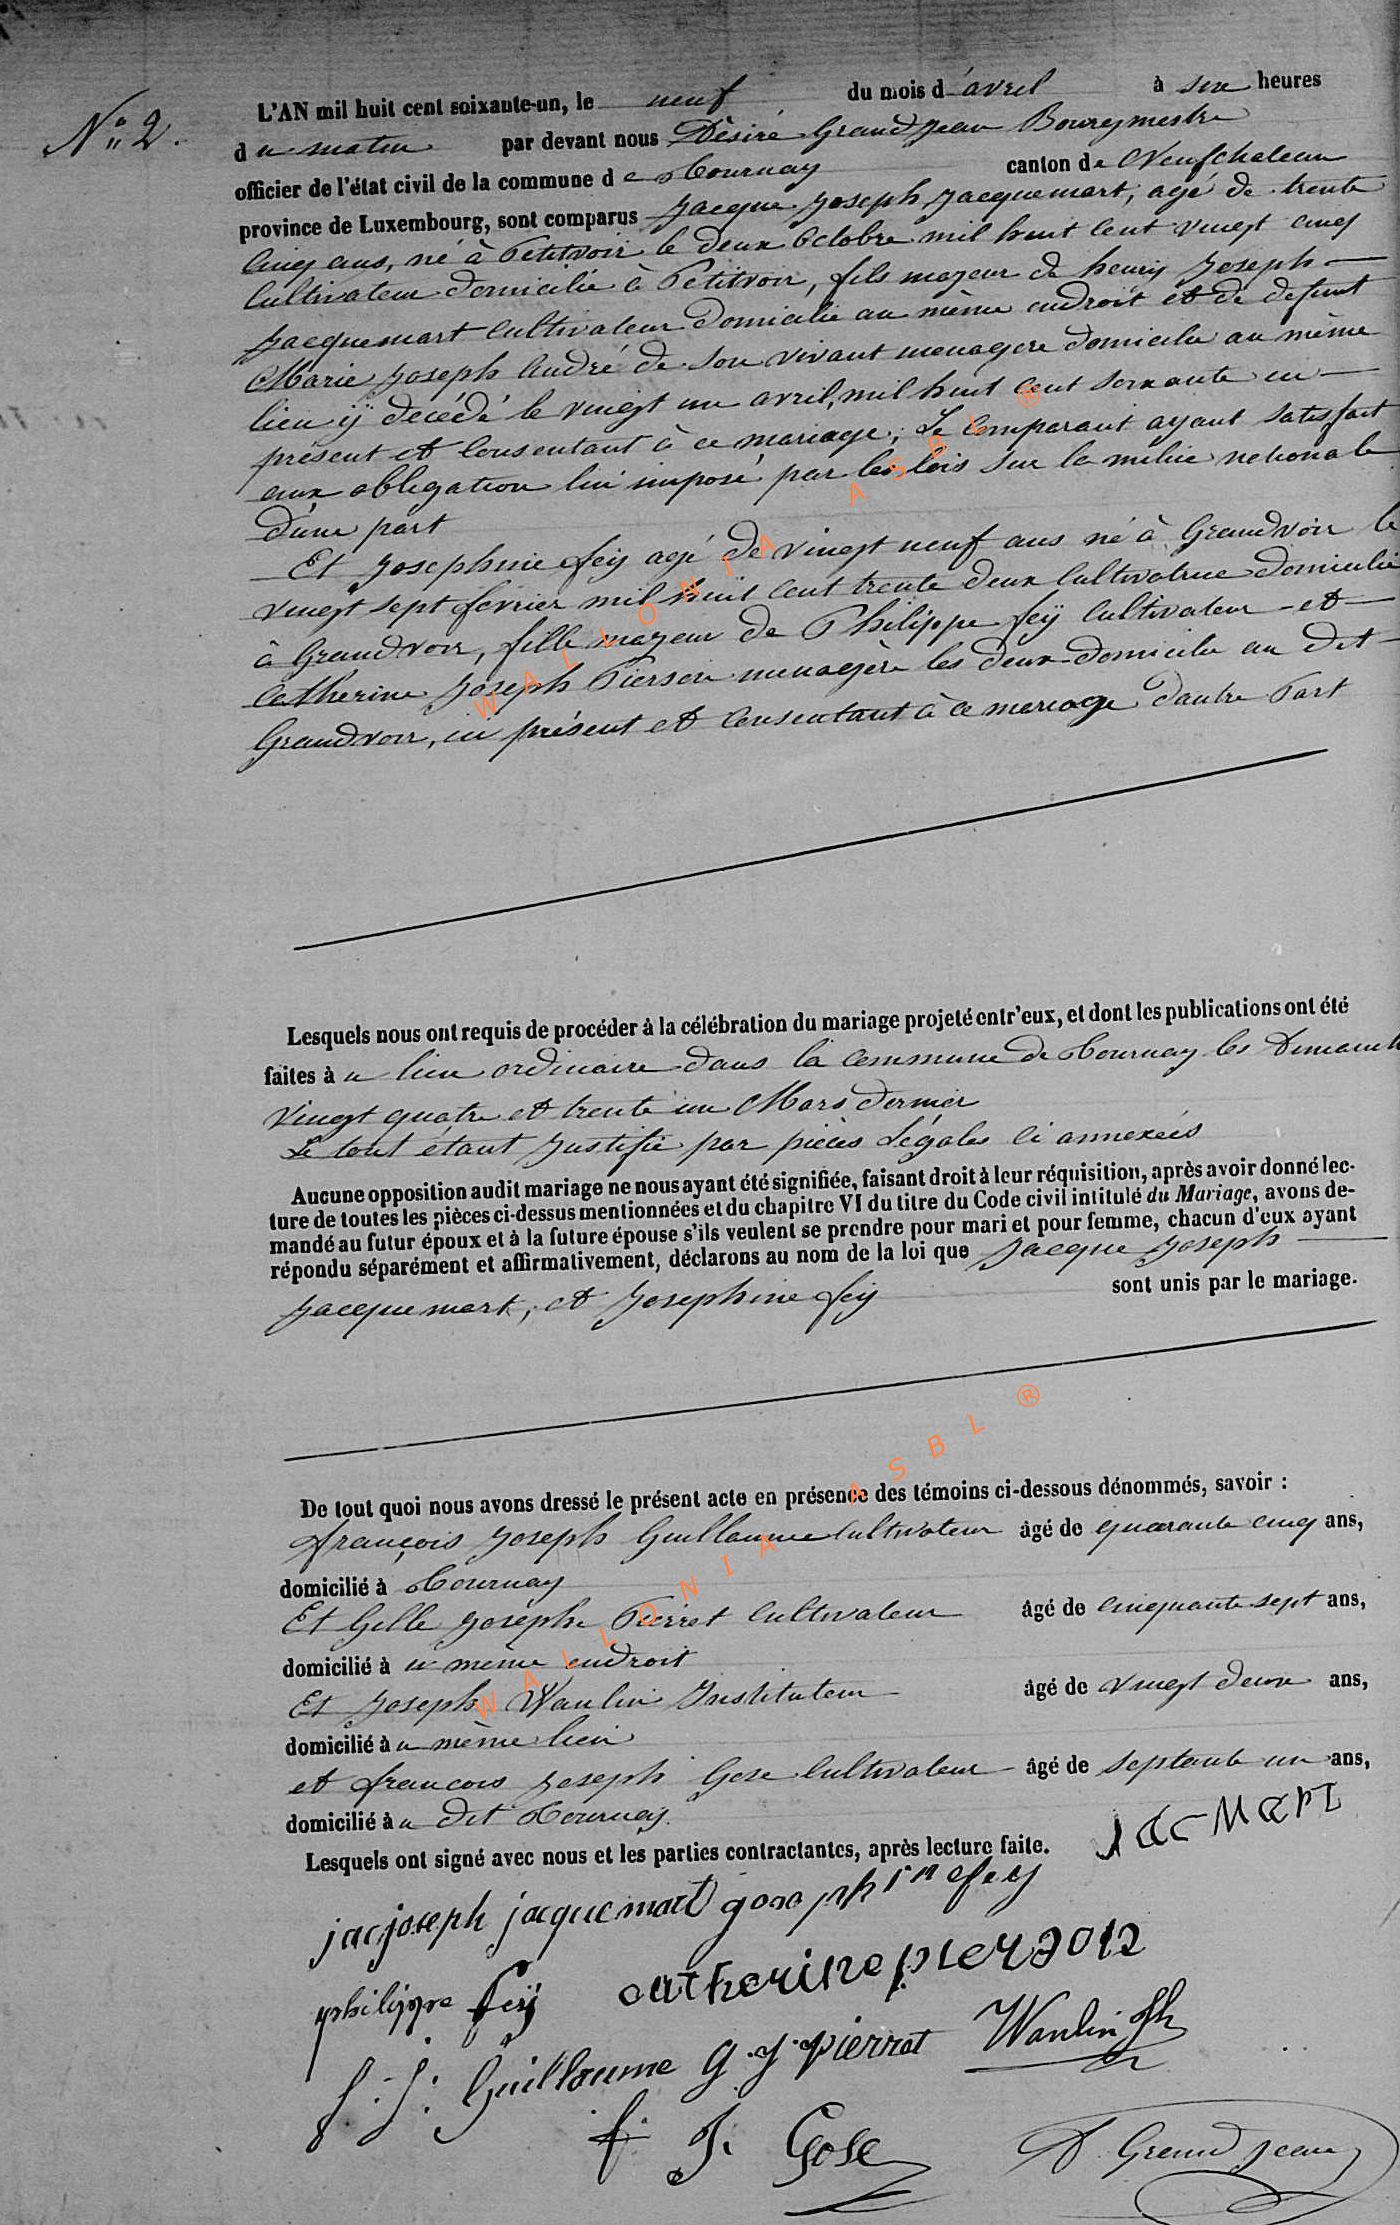 N° 2.
L'AN mil huit cent soixante-un, le neuf du mois d'avril à six heures
du matin par devant nous Désiré Grandjean Bourgmestre
officier de l'état civil de la commune de Tournay canton de Neufchateau
province de Luxembourg, sont comparus Jacque Joseph Jacquemart, agé de trente
cinq ans, né à Petitvoir le deux Octobre mil huit cent vingt cinq
Cultivateur domicilié à Petitvoir, fils majeur de henry Joseph
Jacquemart cultivateur domicilié au même endroit et de defunt
Marie Joseph André de son vivant menagère domicilié au même
lieu ÿ décédé le vingt un avril, mil huit cent soixante un
présent et consentant à ce mariage; Le Comparant ayant satisfait
aux obligation lui imposé par les lois sur la milice nationale
d'une part
Et Josephine feÿ agé de vingt neuf ans né à Grandvoir le
vingt sept fevrier mil huit cent trente deux Cultivatrice domicilié
à Grandvoir, fille majeur de Philippe feÿ Cultivateur et
Catherine Joseph Pierson menagère les deux domicilié au dit
Grandvoir, ici présent et consentant à ce mariage d'autre Part
Lesquels nous ont requis de procéder à la célébration du mariage projeté entr'eux, et dont les publications ont été
faites au lieu ordinaire dans la Commune de Tournay les Dimanch
vingt quatre et trente un Mars dernier
Le tout étant Justifié par pièces Légales ci annexées
Aucune opposition audit mariage ne nous ayant été signifiée, faisant droit à leur réquisition, après avoir donné lec-
ture de toutes les pièces ci-dessus mentionnées et du chapitre VI du titre du Code civil intitulé du Mariage, avons de-
mandé au futur époux et à la future épouse s'ils veulent se prendre pour mari et pour femme, chacun d'eux ayant
répondu séparément et affirmativement, déclarons au nom de la loi que Jacque Joseph
Jacquemart, et Josephine feÿ sont unis par le mariage.
De tout quoi nous avons dressé le présent acte en présence des témoins ci-dessous dénommés, savoir :
françois Joseph Guillaume Cultivateur âgé de quarante cinq ans,
domicilié à Tournay
Et Gille Joseph Pierret Cultivateur âgé de cinquante sept ans,
domicilié au même endroit
Et Joseph Wanlin Instituteur âgé de vingt deux ans,
domicilié au même lieu
et francois Joseph Gose Cultivateur âgé de septante un ans,
domicilié au dit Tournay.
Lesquels ont signé avec nous et les parties contractantes, après lecture faite. Jacmart
jacjoseph jacquemart josephin fey
philippe feÿ catherine pierson
f. J. Guillaume g. j. pierret Wanlin Jh
f. J. Gose D. Grandjean
WALLONIA ASBL ®
WALLONIA ASBL ®